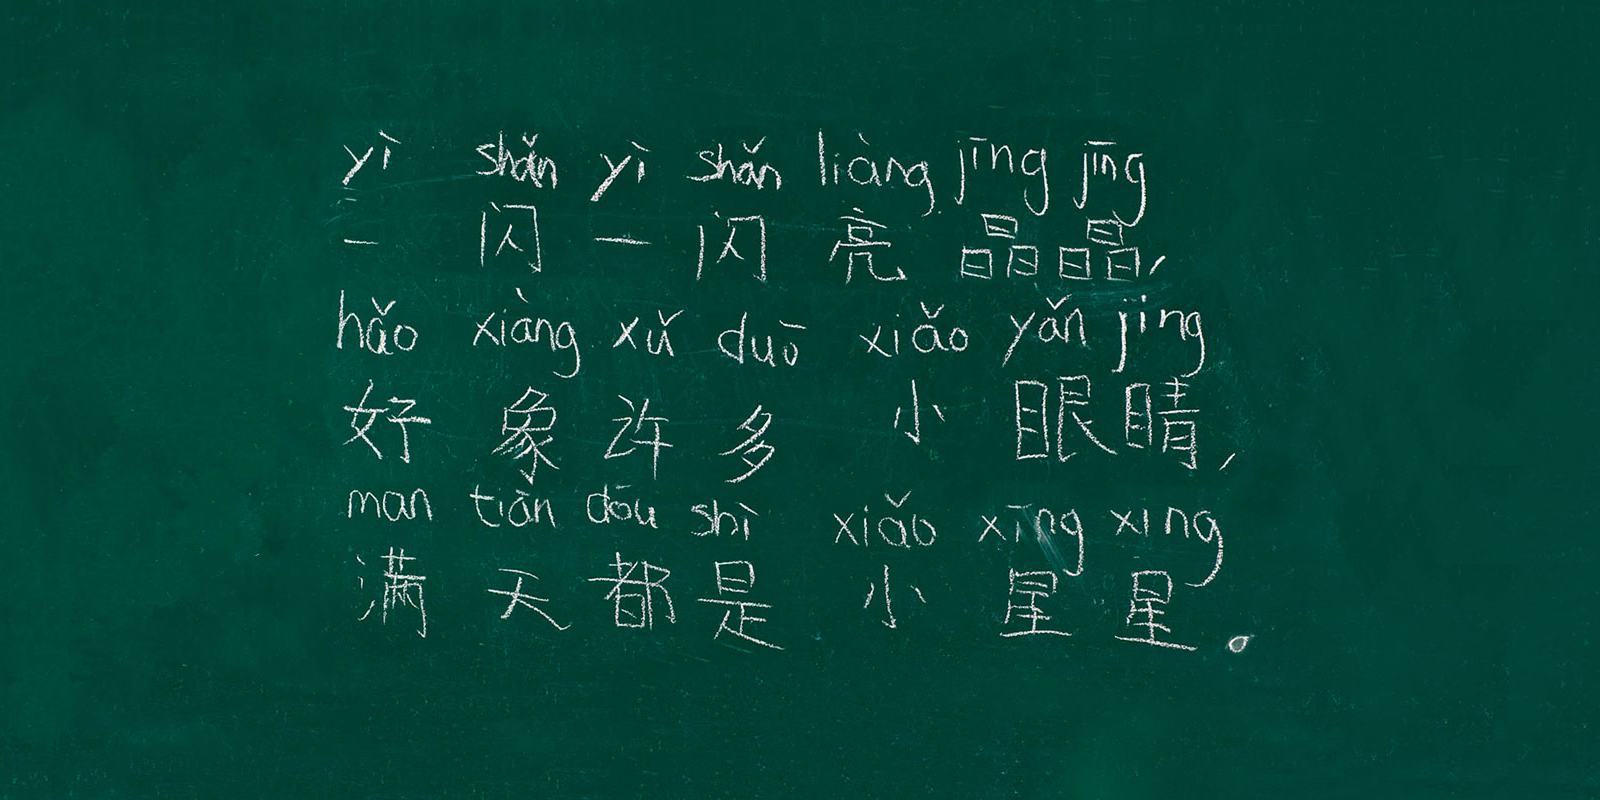 yì shǎn yì shǎn liàng jīng jīng
一 闪 一 闪 亮 晶 晶,
hǎo xiàng xǔ duō xiǎo yǎn jing
好 象 许 多 小 眼 睛,
man tiān dōu shì xiǎo xīng xing
满 天 都 是 小 星 星。